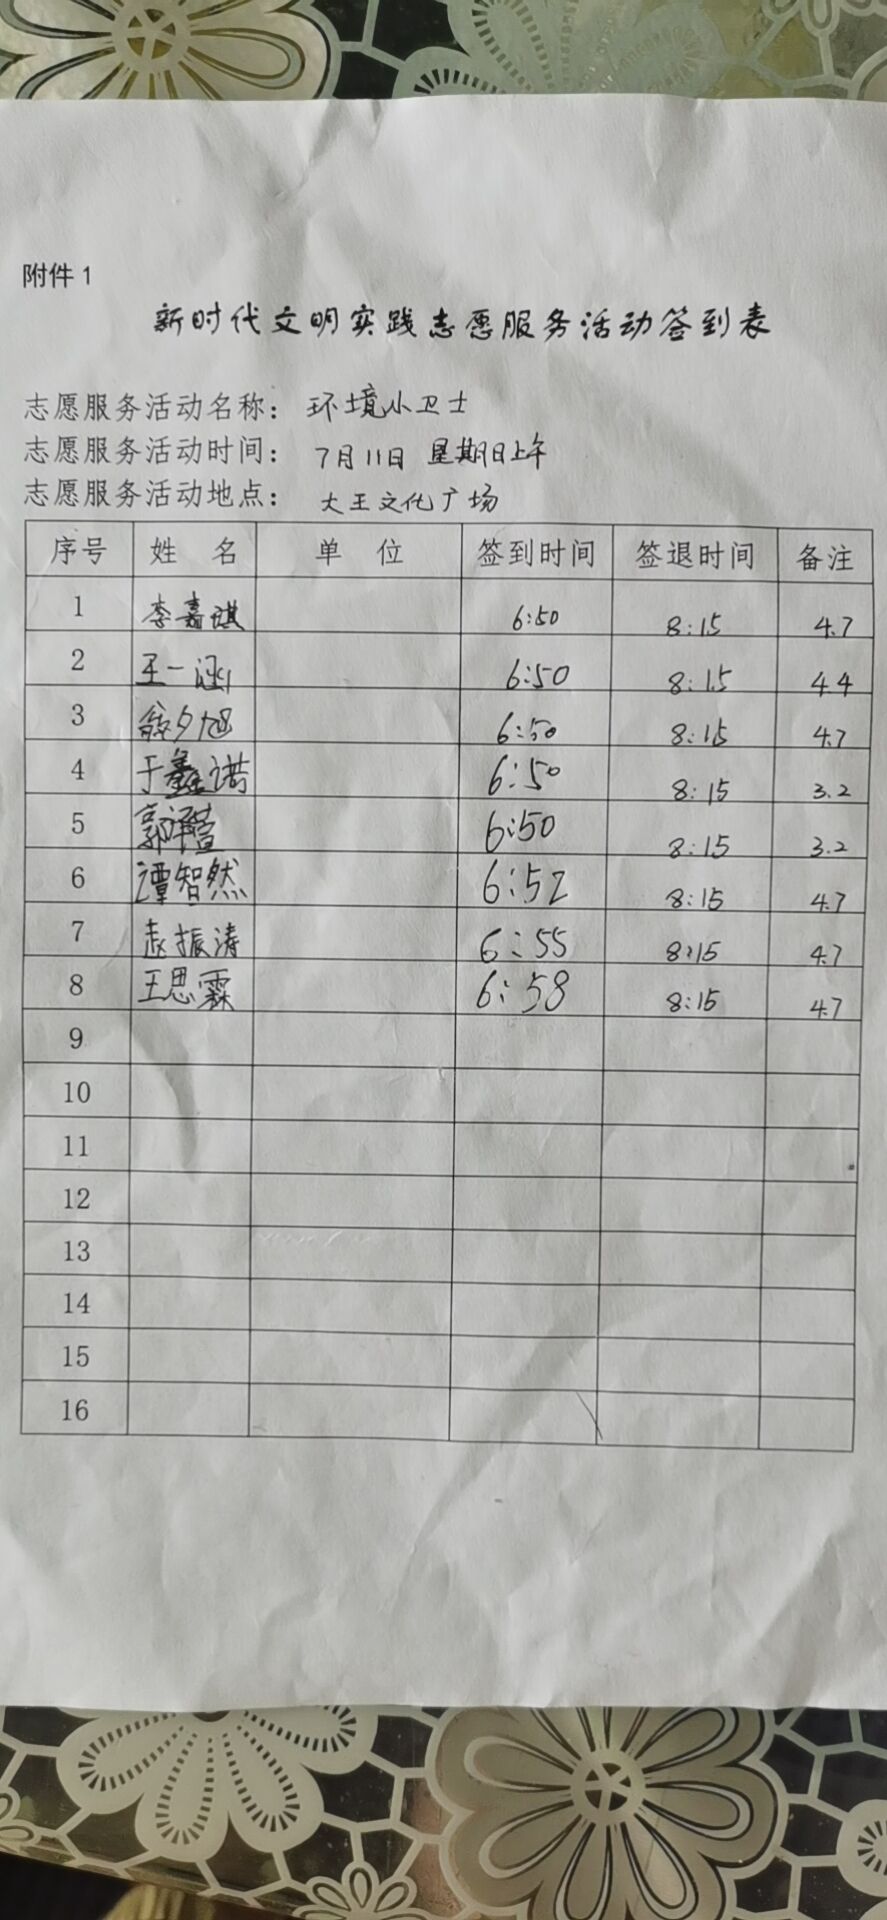 附件1
新时代文明实践志愿服务活动签到表
志愿服务活动名称：环境小卫士
志愿服务活动时间：7月11日 星期日上午
志愿服务活动地点：大王文化广场
序号 姓 名 单 位 签到时间 签退时间 备注
1 李嘉琪 6:50 8:15 4.7
2 王一涵 6:50 8:15 4.4
3 夕旭 6:50 8:15 4.7
4 于鑫诺 6:50 8:15 3.2
5 郭萱 6:50 8:15 3.2
6 谭智然 6:52 8:15 4.7
7 赵振涛 6:55 8:15 4.7
8 王思霖 6:58 8:15 4.7
9
10
11
12
13
14
15
16